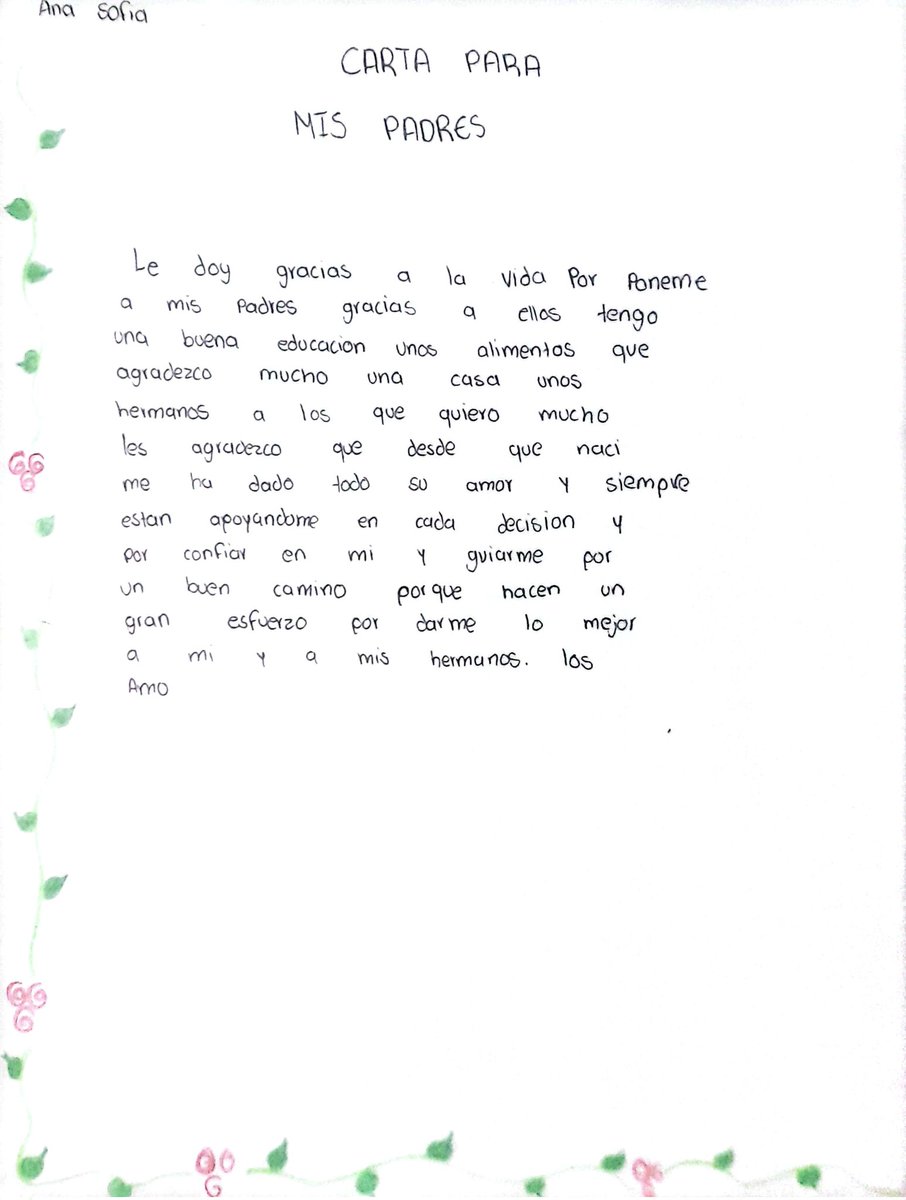 Ana Sofia
CARTA PARA
MIS PADRES
Le doy gracias a la vida Por Ponerme
a mis Padres gracias a ellos tengo
una buena educacion unos alimentos que
agradezco mucho una casa unos
hermanos a los que quiero mucho
les agradezco que desde que naci
me ha dado todo su amor y siempre
estan apoyandome en cada decision y
por confiar en mi y guiarme por
un buen camino porque hacen un
gran esfuerzo por darme lo mejor
a mi y a mis hermanos. los
Amo